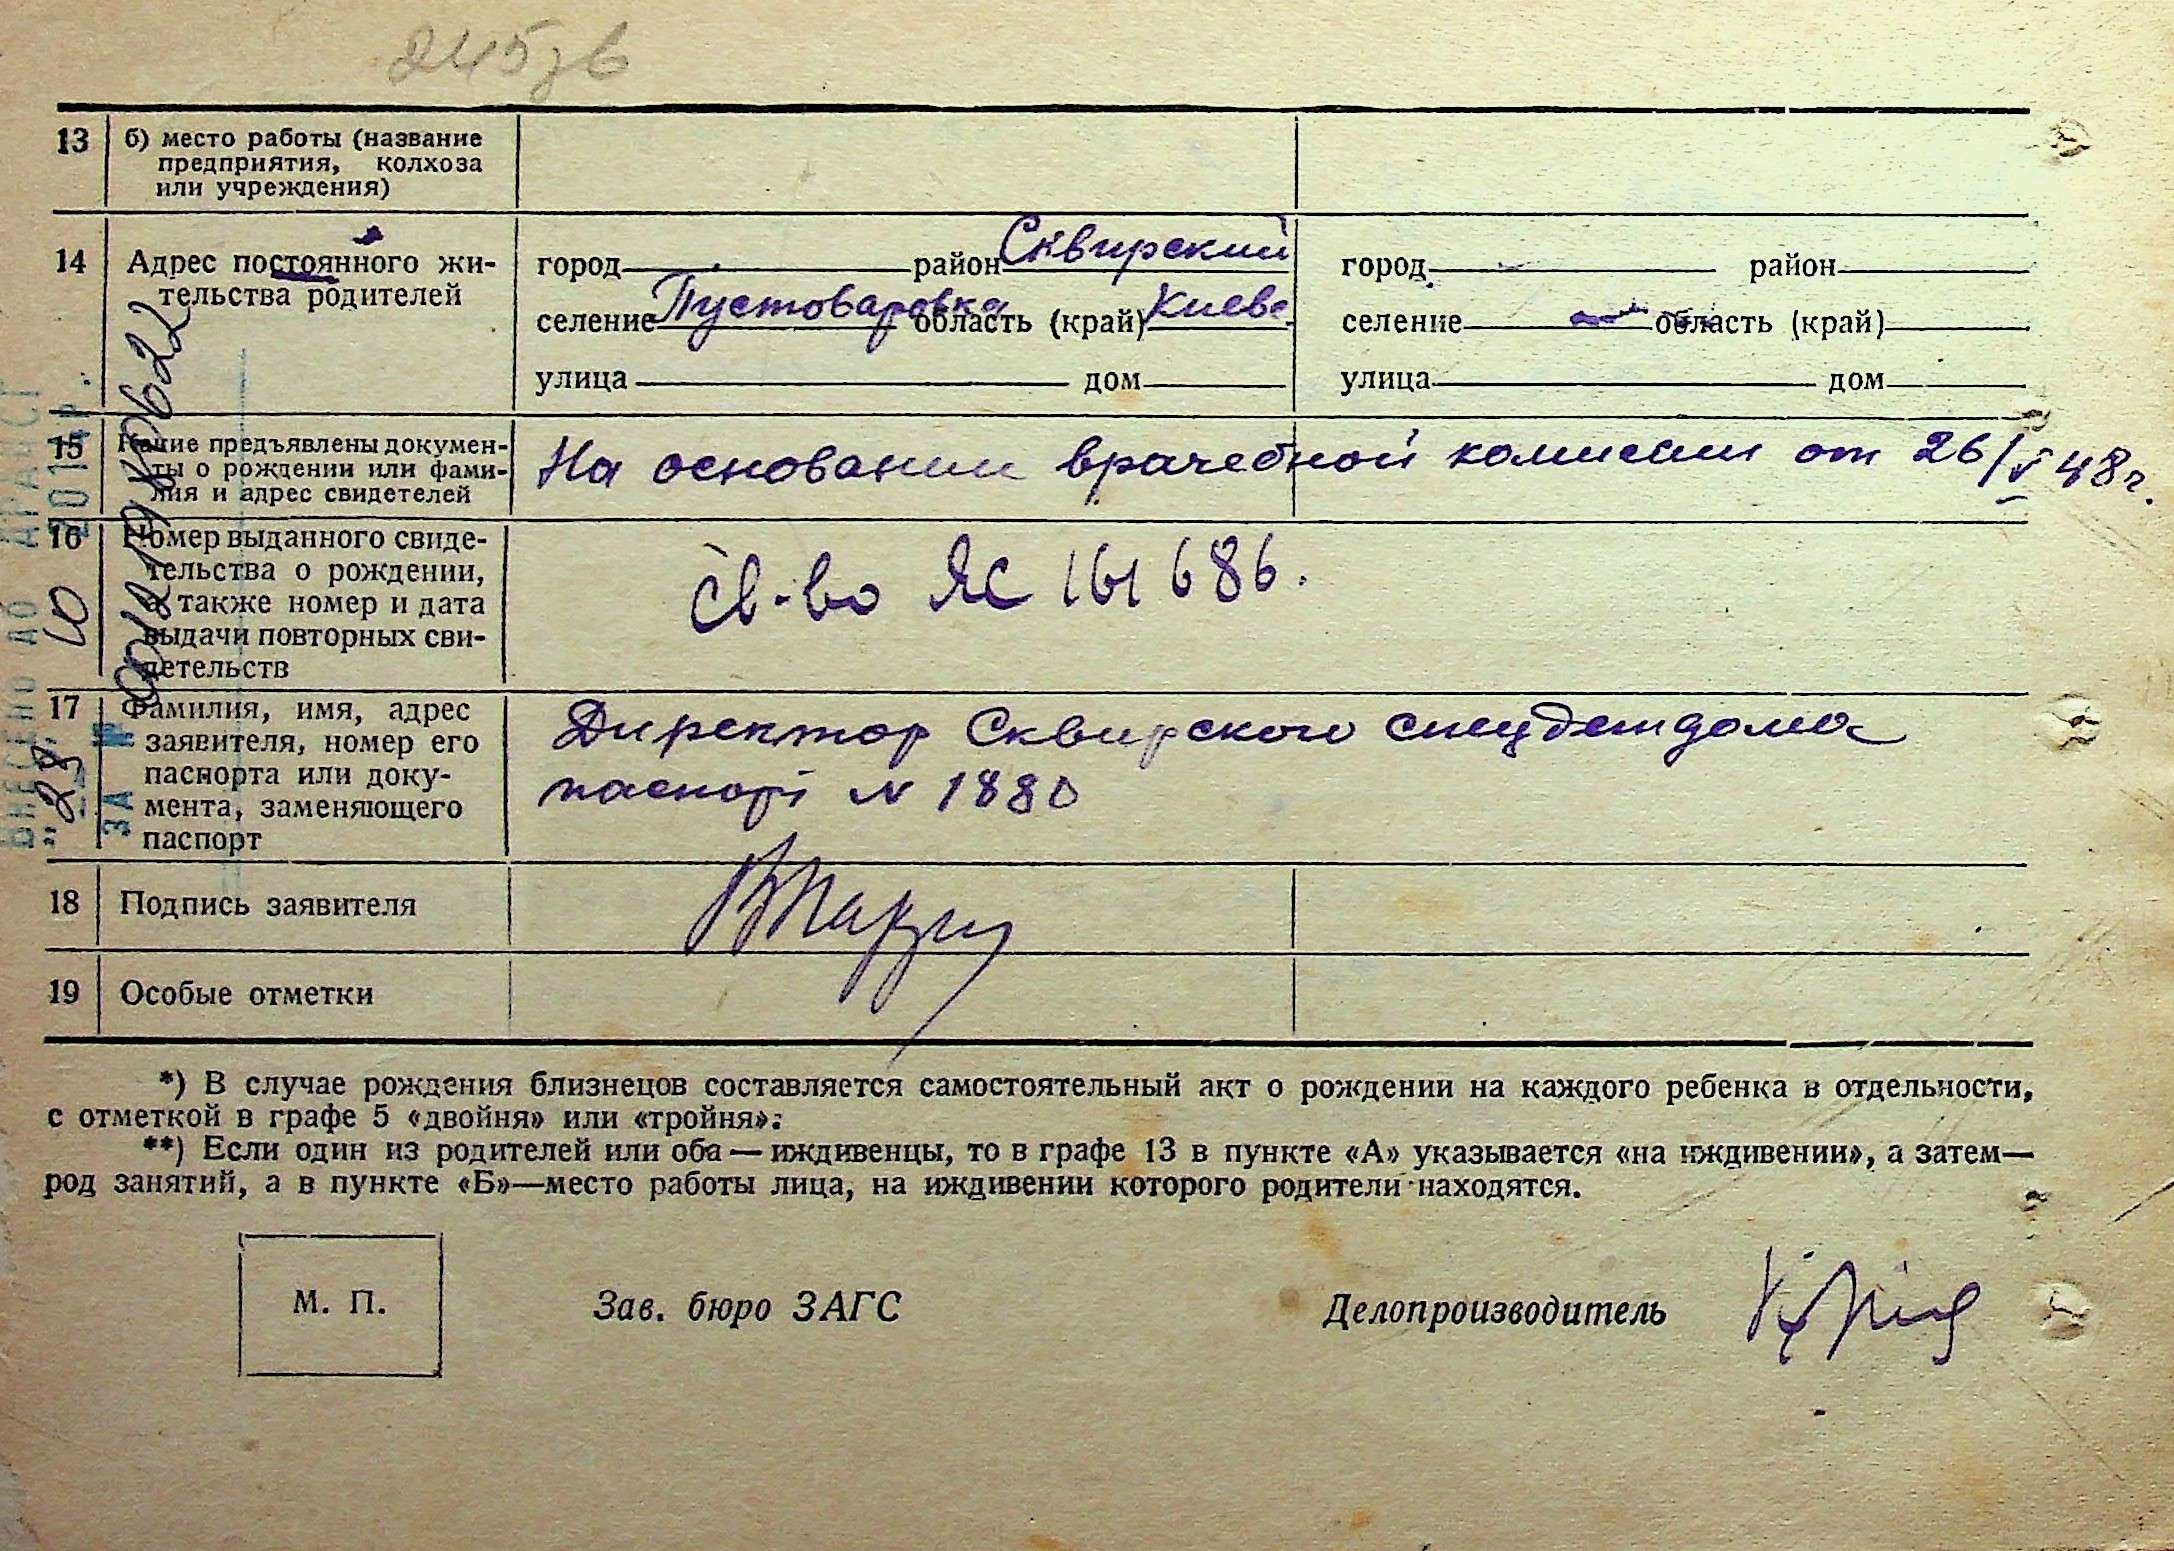 245зв
13 б) место работы (название
предприятия, колхоза
или учреждения)
14 Адрес постоянного жи-
тельства родителей
город район Сквирский
селение Пустоваровка область (край) Киевс.
улица дом
город район
селение область (край)
улица дом
15 Какие предъявлены докумен-
ты о рождении или фами-
лия и адрес свидетелей
На основании врачебной комиссии от 26/V 48г.
16 Номер выданного свиде-
тельства о рождении,
а также номер и дата
выдачи повторных сви-
детельств
Св-во ЯС 161686.
17 Фамилия, имя, адрес
заявителя, номер его
паспорта или доку-
мента, заменяющего
паспорт
Директор Сквирского спецдетдома
паспорт N 1880
18 Подпись заявителя
19 Особые отметки
ВНЕСЕНО ДО ДРАЦСГ
"28" 10 2014 р.
ЗА №
*) В случае рождения близнецов составляется самостоятельный акт о рождении на каждого ребенка в отдельности,
с отметкой в графе 5 «двойня» или «тройня».
**) Если один из родителей или оба — иждивенцы, то в графе 13 в пункте «А» указывается «на иждивении», а затем—
род занятий, а в пункте «Б»—место работы лица, на иждивении которого родители находятся.
М. П.
Зав. бюро ЗАГС
Делопроизводитель